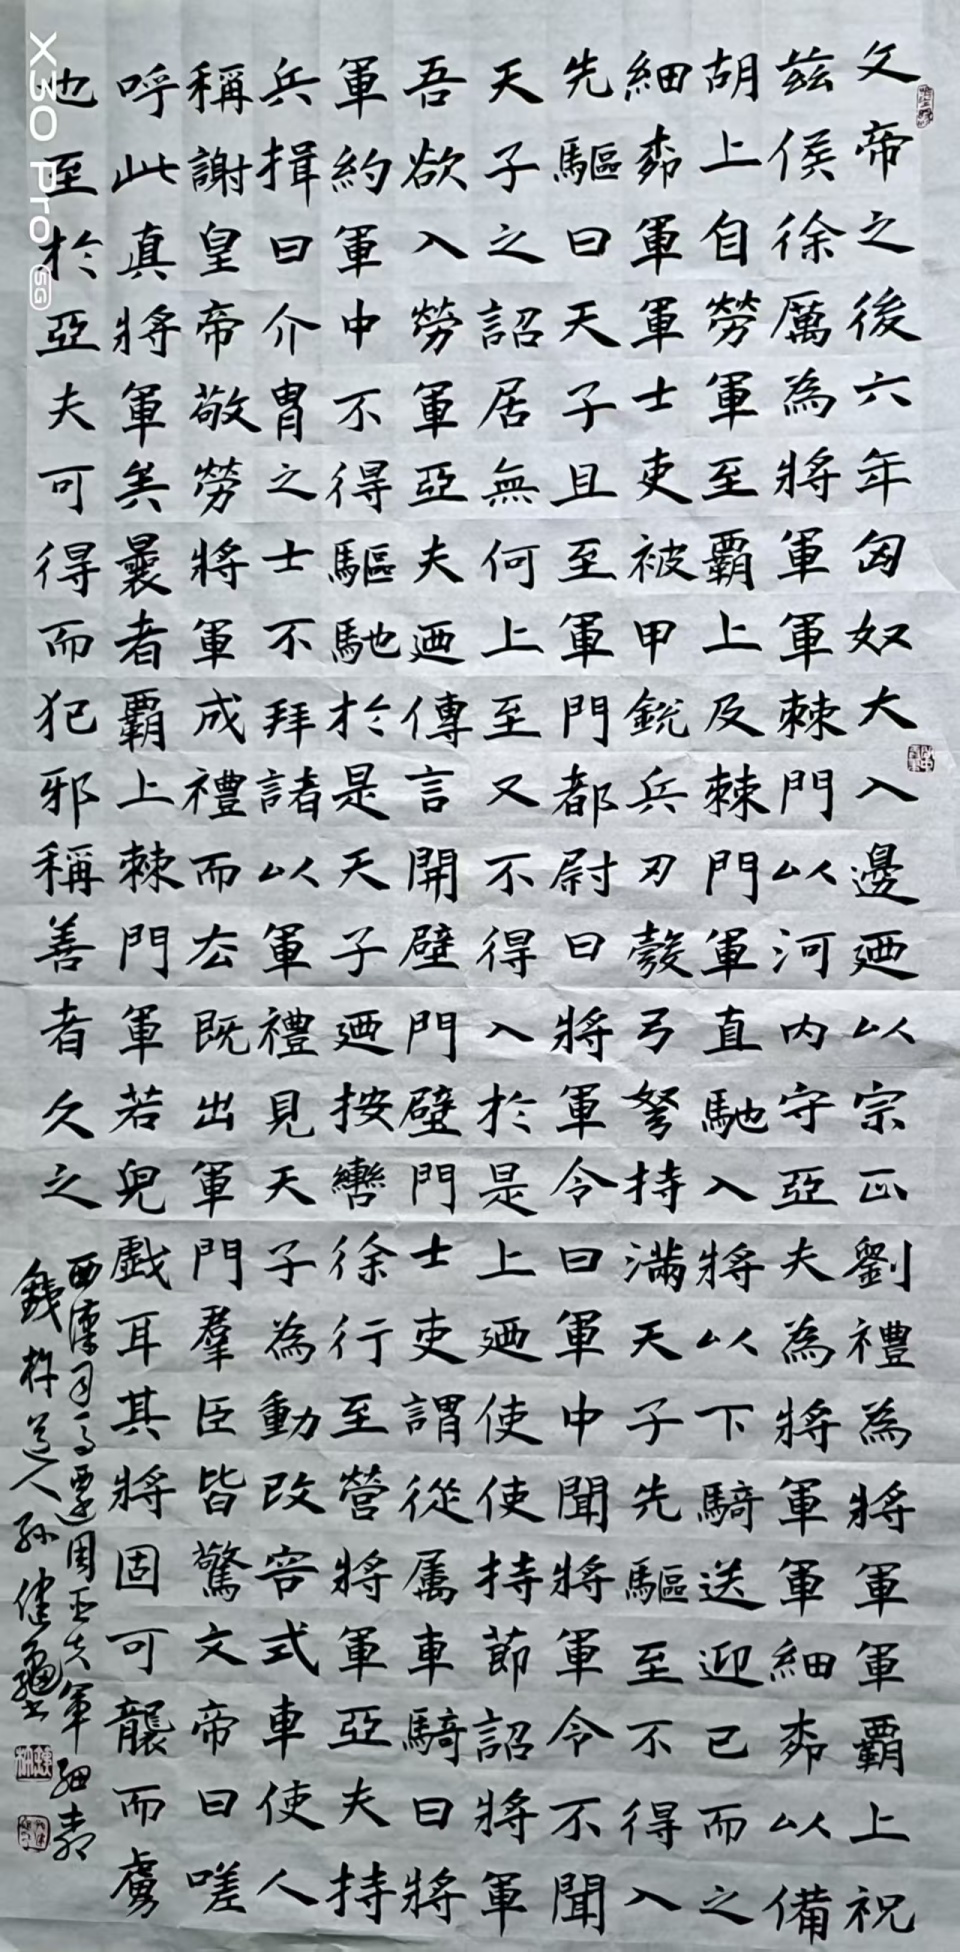 文帝之後六年匈奴大入邊廼以宗正劉禮為將軍軍霸上祝
茲侯徐厲為將軍軍棘門以河内守亞夫為將軍軍細柳以備
胡上自勞軍至霸上及棘門軍直馳入將以下騎送迎已而之
細柳軍軍士吏被甲銳兵刃彀弓弩持滿天子先驅至不得入
先驅曰天子且至軍門都尉曰將軍令曰軍中聞將軍令不聞
天子之詔居無何上至又不得入於是上廼使使持節詔將軍
吾欲入勞軍亞夫廼傳言開壁門壁門士吏謂從属車騎曰將
軍約軍中不得驅馳於是天子廼按轡徐行至營將軍亞夫持
兵揖曰介胄之士不拜諸以軍禮見天子為動改容式車使人
稱謝皇帝敬勞將軍成禮而去既出軍門羣臣皆驚文帝曰嗟
呼此真將軍矣曩者霸上棘門軍若兒戲耳其將固可襲而虜
也至於亞夫可得而犯邪稱善者久之
西漢司馬遷周亞夫軍細柳
錢 道人孫健
X30 Pro 5G